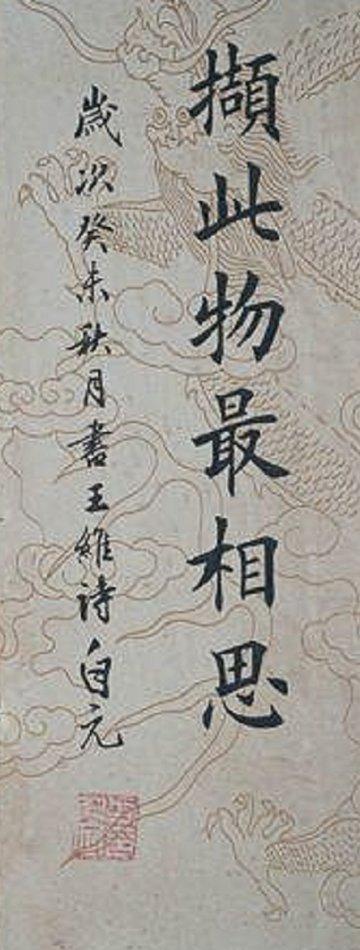 擷此物最相思
歲次癸未秋月書王維詩白元